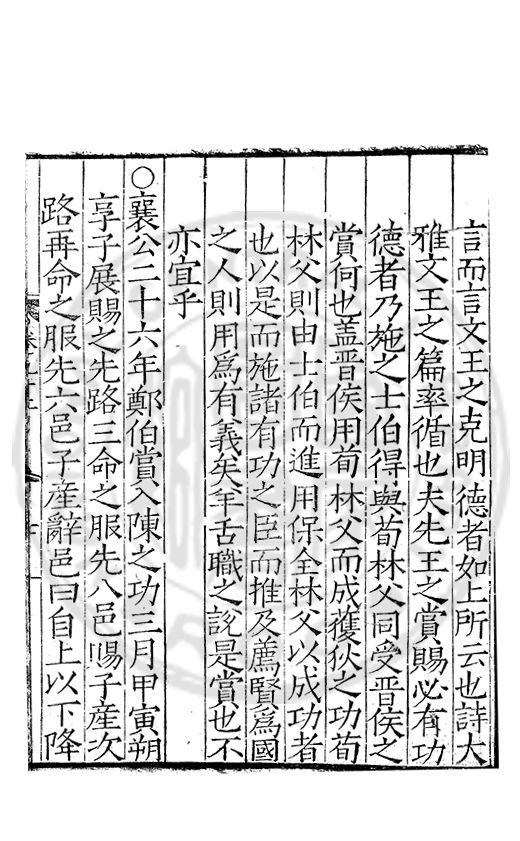 言而言文王之克明德者如上所云也詩大
雅文王之篇率循也夫先王之賞賜必有功
德者乃施之士伯得與荀林父同受晋侯之
賞何也盖晋侯用荀林父而成獲狄之功荀
林父則由士伯而進用保全林父以成功者
也以是而施諸有功之臣而推及薦賢爲國
之人則用爲有義矣羊舌職之説是賞也不
亦宜乎
○襄公二十六年鄭伯賞入陳之功三月甲寅朔
享子展賜之先路三命之服先八邑賜子產次
路再命之服先六邑子產辭邑曰自上以下降